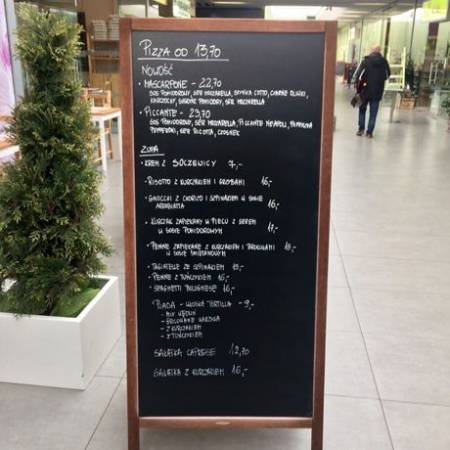 PIZZA OD 13,70
NOWOŚĆ
• MASCARPONE - 22,70
SOS POMIDOROWY, SER MOZZARELLA, SZYNKA COTTO, CZARNE OLIWKI,
KARCZOCHY, SUSZONE POMIDORY, SER MASCARPONE
• PICCANTE - 23,70
SOS POMIDOROWY, SER MOZZARELLA, PICCANTE NEAPOLI, PAPRYKA
PEPPERONI, SER RICOTTA, CZOSNEK
ZUPA
• KREM Z SOCZEWICY 7,-
• RISOTTO Z KURCZAKIEM I GRZYBAMI 16,-
• GNOCCHI Z CHORIZO I SZPINAKIEM W SOSIE 16,-
ARRABIATA
• KURCZAK ZAPIEKANY W PIECU Z SEREM
W SOSIE POMIDOROWYM 17,-
• PENNE ZAPIEKANE Z KURCZAKIEM I BROKUŁAMI 18,-
W SOSIE ŚMIETANOWYM
• TAGIATELE ZE SZPINAKIEM 15,-
• PENNE Z TUŃCZYKIEM 16,-
• SPAGHETTI BOLOGNESE 16,-
PIADA - WŁOSKA TORTILLA - 9,-
- MIX WĘDLIN
- GRILLOWANE WARZYWA
- Z KURCZAKIEM
- Z TUŃCZYKIEM
SAŁATKA CAPRESE 12,70
SAŁATKA Z KURCZAKIEM 16,-